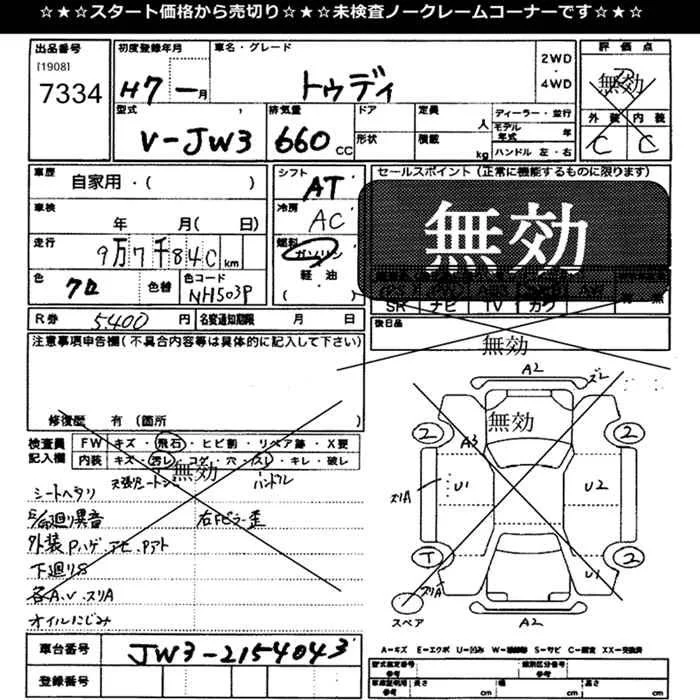 ☆★☆★スタート価格から売切り☆★☆★未検査ノークレームコーナーです☆★☆
出品番号
[1908]
7334
初度登録年月
H7 ー 月
車名・グレード
トゥデイ
2WD
・
4WD
評価点
無効
外装 内装
C C
型式
V-JW3
排気量
660 CC
ドア
形状
定員
人
積載
kg
ディーラー・並行
モデル年式 年
ハンドル 左・右
車歴
自家用・( )
車検
年 月( 日)
走行
9万7千84C km
色
クロ
色替
色コード
NH503P
シフト
AT
冷房
AC
燃料
ガソリン
軽・油
( )
セールスポイント(正常に機能するものに限ります)
無効
SR ナビ TV カワ
後日品
無効
R券 5,400 円
名変通知期限 月 日
注意事項申告欄(不具合内容等は具体的に記入して下さい)
修復歴 有(箇所 )
検査員記入欄
FW キズ・飛石・ヒビ割・リペア跡・X要
内装 キズ・汚レ・コゲ・穴・スレ・キレ・破レ
無効
天張り シート ハンドル
シートヘタリ
右Fピラー歪
下廻りS
各A.V.スリA
オイルにじみ
無効
A2
ズ2
2 2
A3
スリA
U1 U2
T 2
スリA
U1
スペア
A2
A=キズ E=エクボ U=凹み S=サビ C=腐食 XX=交換済
車台番号
JW3-2154043
登録番号
型式指定番号
類別区分番号
長さ cm 幅 cm 高さ cm